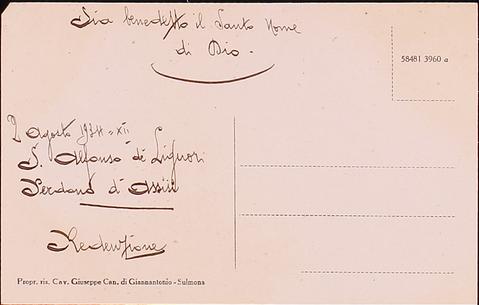 Sia benedetto il Santo Nome
di Dio.
58481 3960 a
2 Agosto 1934 = XII
S. Alfonso de Liguori
Perdono d'Assisi
Redenzione
Propr. ris. Cav. Giuseppe Can. di Giannantonio - Sulmona